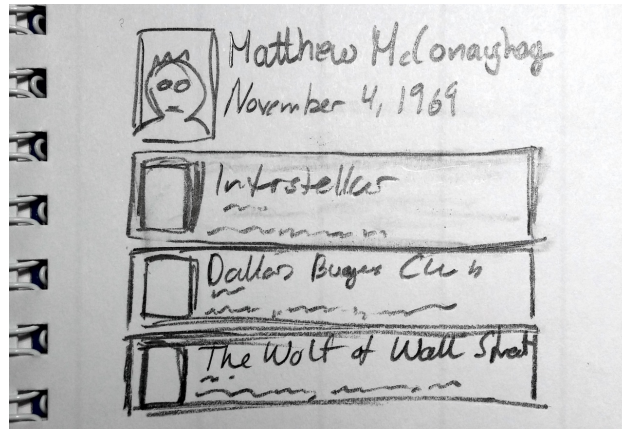 Matthew McConaughay
November 4, 1969
Interstellar
Dallas Buyers Club
The Wolf of Wall Street